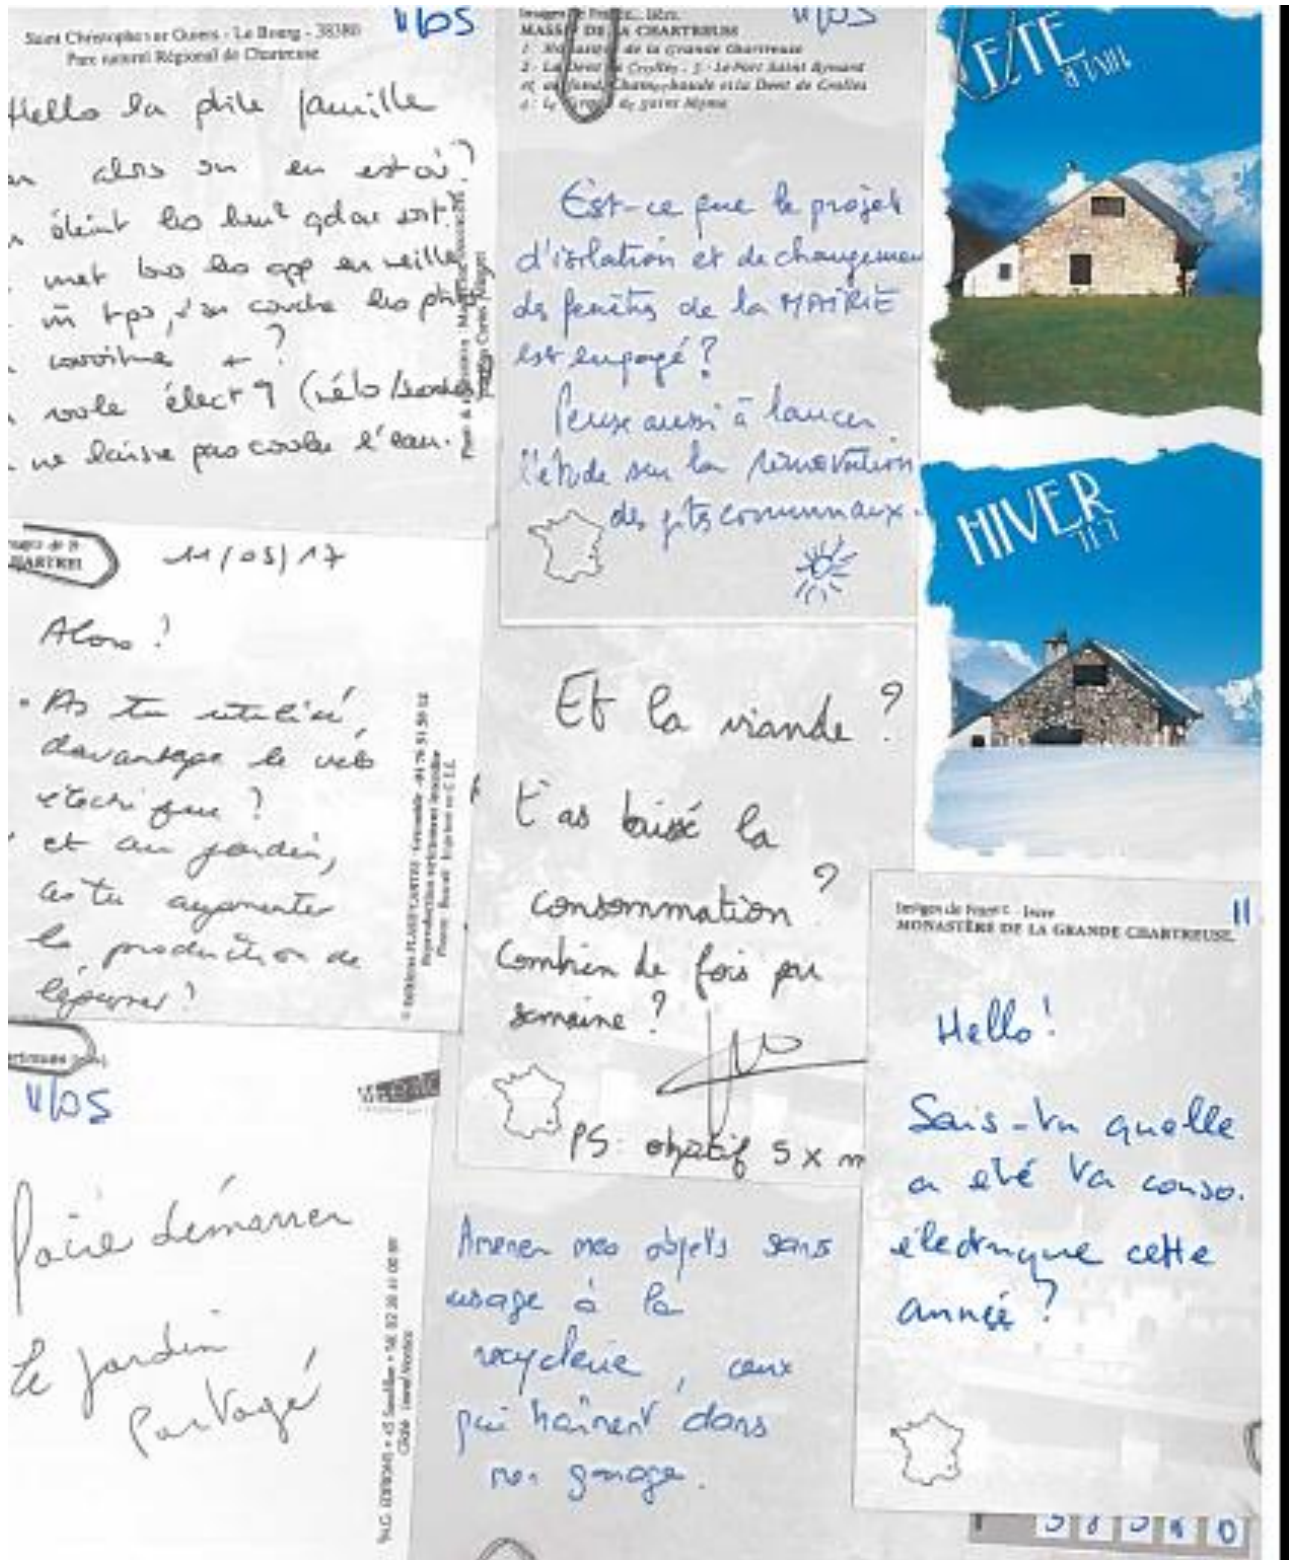 11/05
Saint Christophe sur Guiers - Le Bourg - 38380
Parc naturel Régional de Chartreuse
Hello la ptite famille
alors on en est où ?
éteint les lum gd on sort ?
met tos les app en veille
m tps, s'on couche les ptits
covoiture + ?
roule élect ? (vélo /
ne laisse pas couler l'eau.
11/05
Images de France - Isère
MASSIF DE LA CHARTREUSE
1 : Monastère de la Grande Chartreuse
2 - La Dent de Crolles - 3 - Le Fort Saint Eynard
et au fond, Chamechaude et la Dent de Crolles
4 : Le Cirque de Saint Même
Est-ce que le projet
d'isolation et de changemen
des fenêtres de la MAIRIE
est engagé ?
Pense aussi à lancer
l'étude sur la rénovation
des gîts communaux.
ETE
HIVER
CHARTREU
11/05/17
Alors ?
As tu utilisé,
davantage le vélo
électrique ?
et au jardin,
as tu augmenter
la production de
légumes ?
Et la viande ?
t'as baissé la
consommation ?
Combien de fois par
semaine ?
PS : objectif 5 x m
Images de France - Isère
MONASTÈRE DE LA GRANDE CHARTREUSE
11
Hello !
Sais-tu quelle
a été ta conso.
électrique cette
année ?
11/05
faire démarrer
le jardin
Partagé
Amener mes objets sans
usage à la
recyclerie, ceux
qui traînent dans
mon garage.
3 8 3 8 0